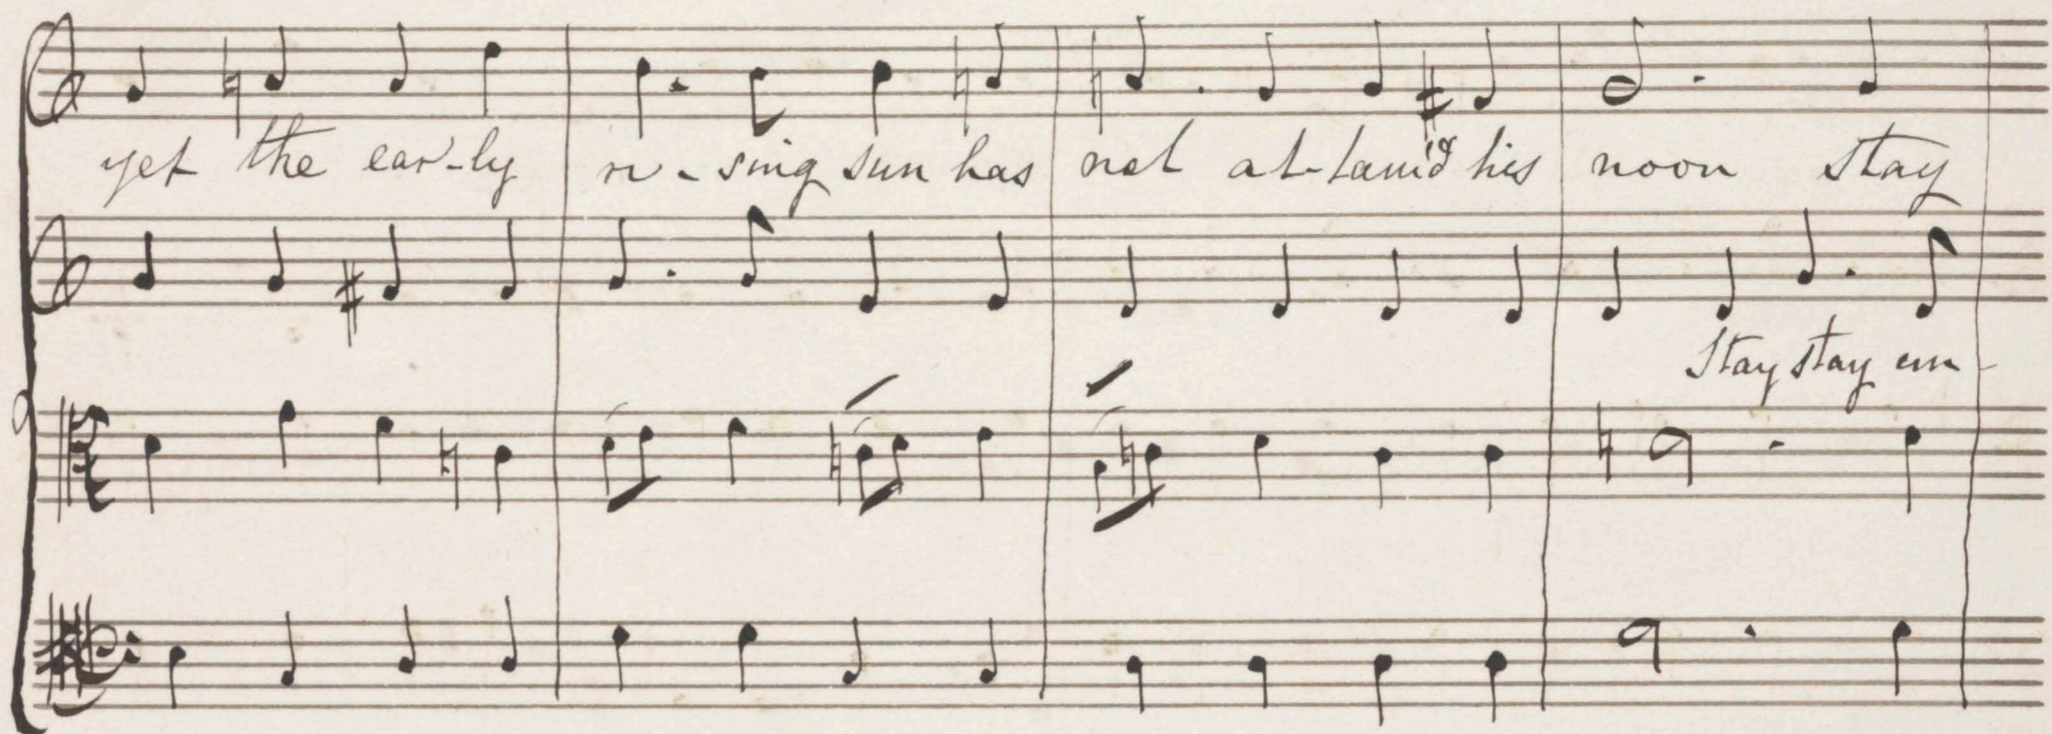 yet the ear-ly ri-sing sun has not at-tain'd his noon stay
Stay stay un-